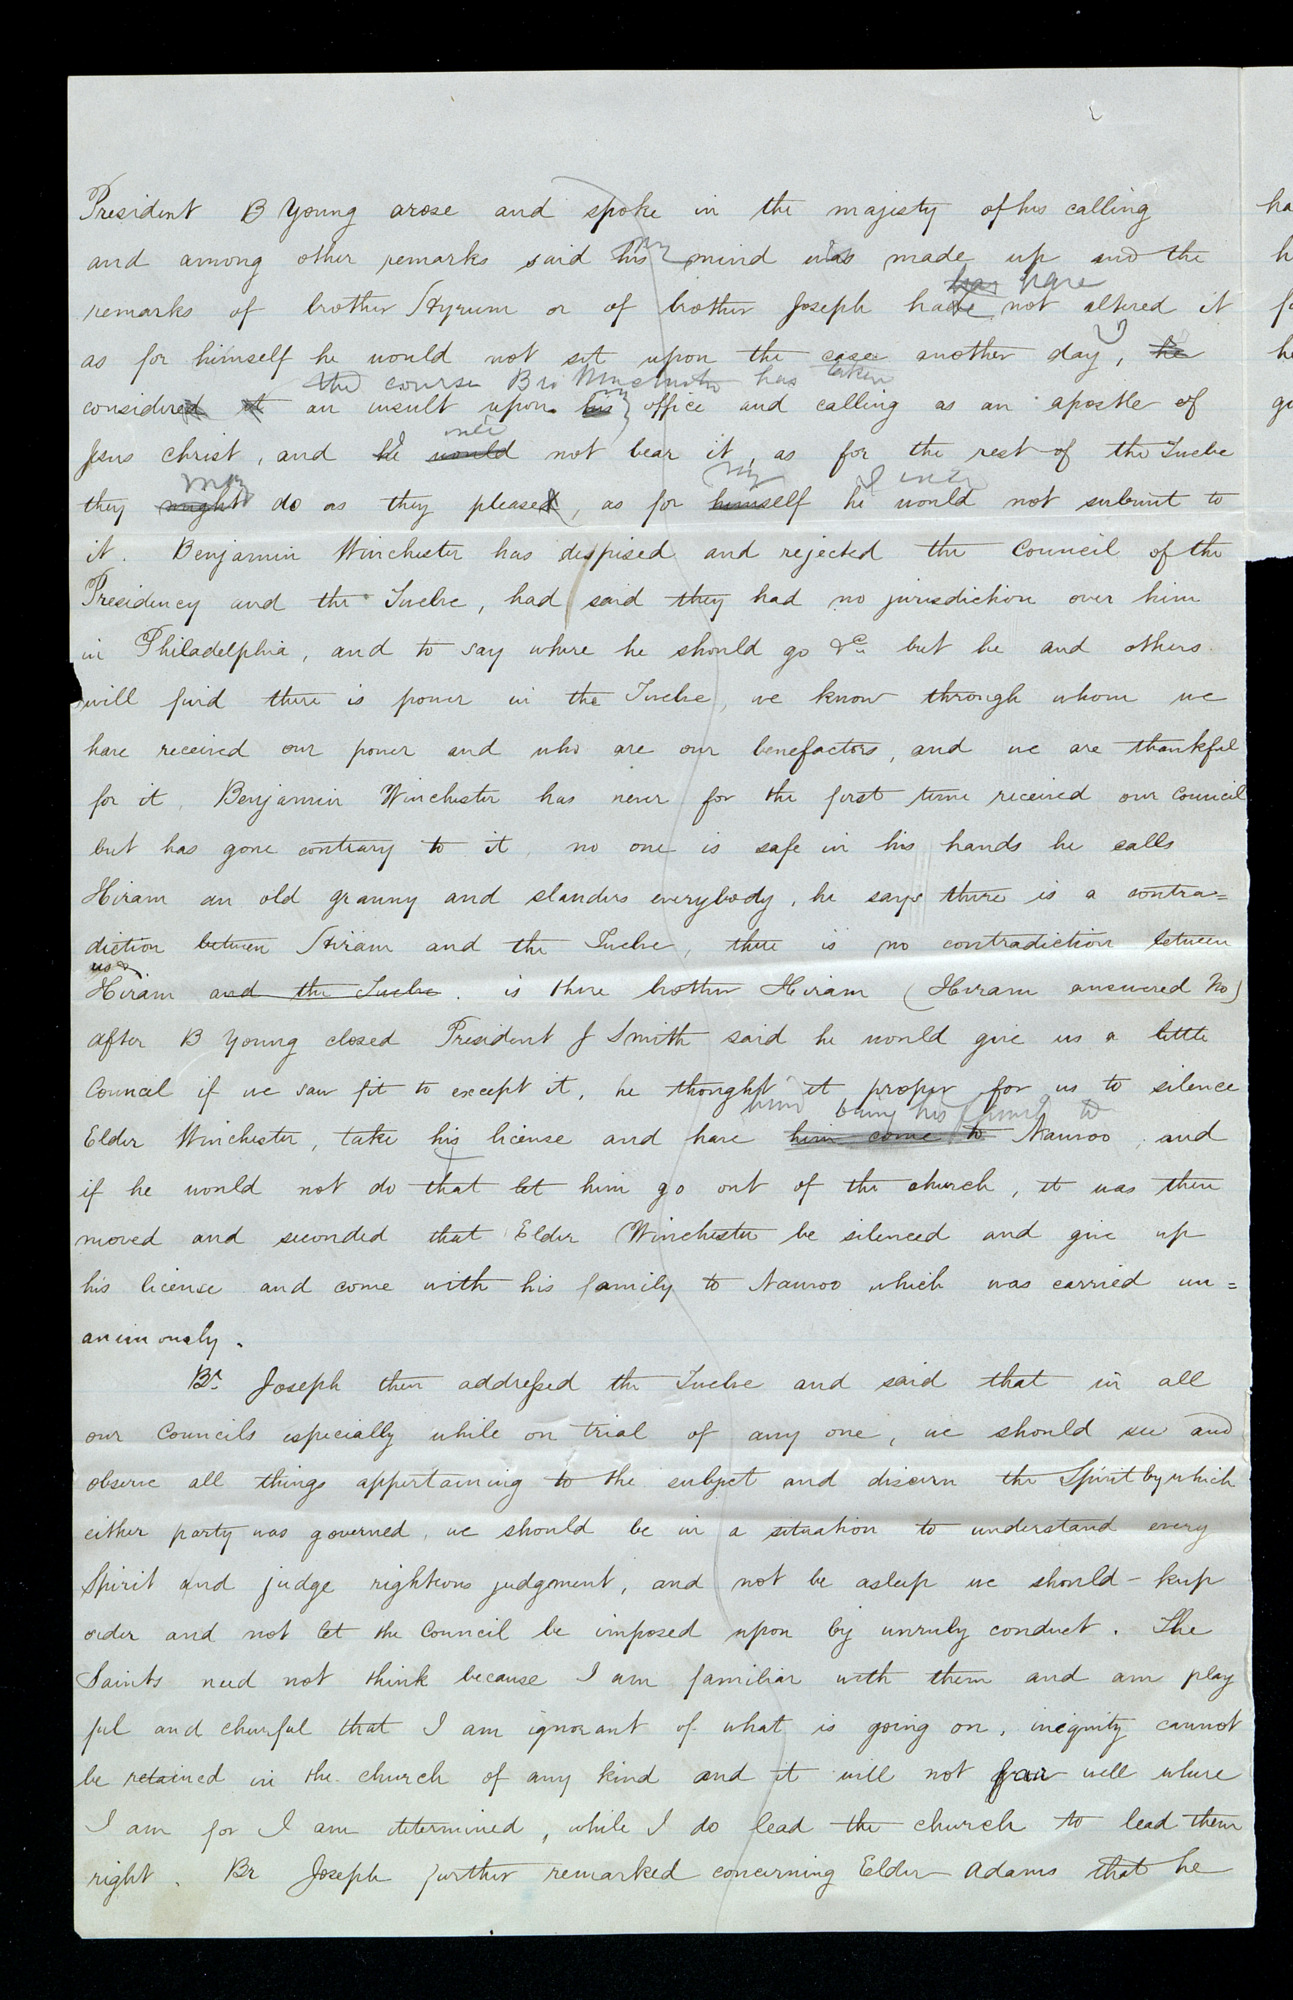 President B Young arose and spoke in the majesty of his calling
and among other remarks said his my mind was is made up and the
remarks of brother Hyrum or of brother Joseph had has have not altered it
as for himself he would not sit upon the case another day, he
considered it the course Bro Winchester has taken an insult upon his my office and calling as an apostle of
Jesus Christ, and he I would will not bear it, as for the rest of the Twelve
they might may do as they pleased, as for himself my self he I would will not submit to
it. Benjamin Winchester has despised and rejected the Council of the
Presidency and the Twelve, had said they had no jurisdiction over him
in Philadelphia, and to say where he should go &c but he and others
will find there is power in the Twelve, we know through whom we
have received our power and who are our benefactors, and we are thankful
for it, Benjamin Winchester has never for the first time received our council
but has gone contrary to it, no one is safe in his hands he calls
Hiram an old granny and slanders everybody, he says there is a contra=
diction between Hiram and the Twelve, there is no contradiction between
us &
Hiram and the Twelve. is there brother Hiram (Hiram answered No)
after B Young closed President J Smith said he would give us a little
Council if we saw fit to except it, he thought it proper for us to silence
Elder Winchester, take his license and have him come to him bring his family to Nauvoo and
if he would not do that let him go out of the church, it was then
moved and seconded that Elder Winchester be silenced and give up
his license and come with his family to Nauvoo which was carried un=
animously.
Br. Joseph then addressed the Twelve and said that in all
our Councils especially while on trial of any one, we should see and
observe all things appertaining to the subject and discern the Spirit by which
either party was governed, we should be in a situation to understand every
Spirit and judge righteous judgment, and not be asleep we should keep
order and not let the Council be imposed upon by unruly conduct. The
Saints need not think because I am familiar with them and am play
ful and cheerful that I am ignorant of what is going on, inequity cannot
be retained in the church of any kind and it will not fair well where
I am for I am determined, while I do lead the church to lead them
right. Br Joseph further remarked concerning Elder Adams that he